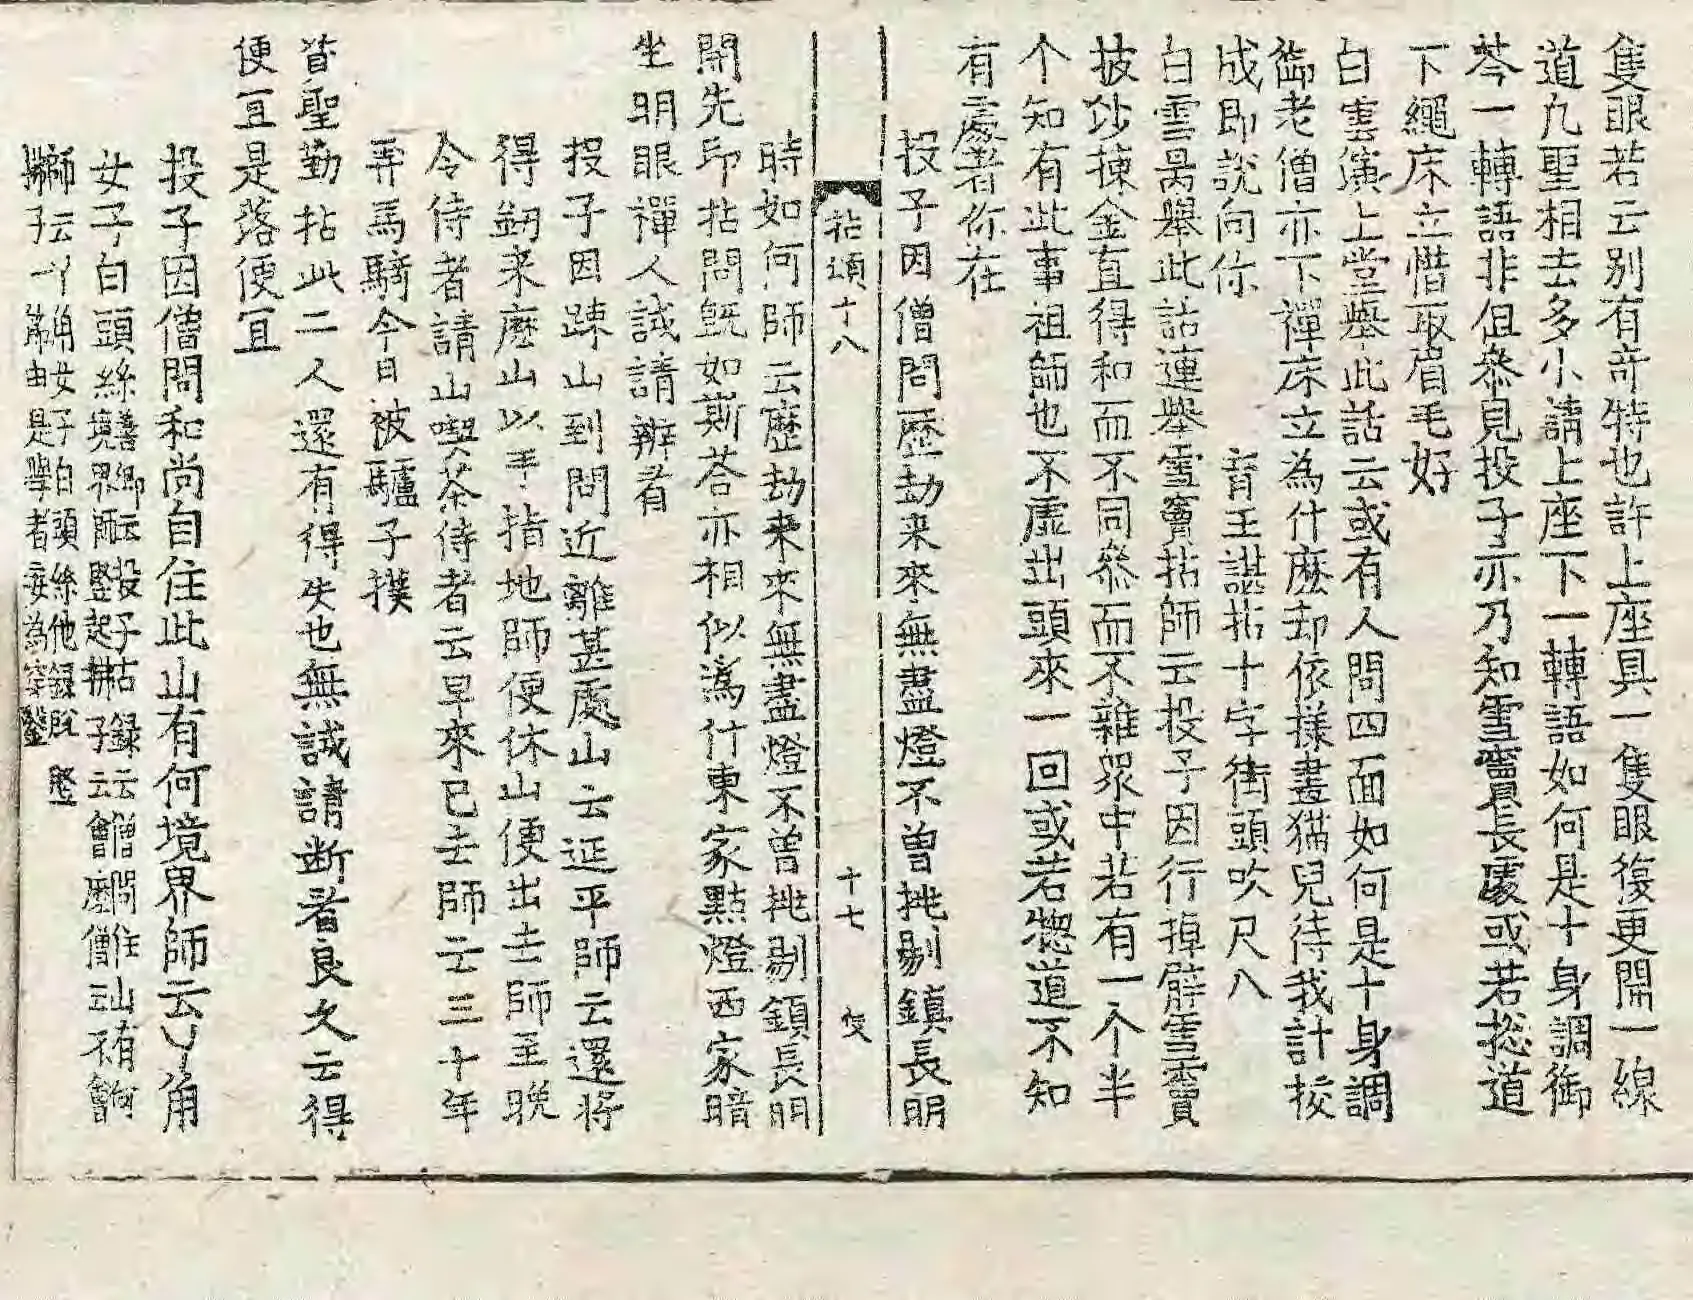 隻眼若云別有奇特也許上座具一隻眼復更開一線
道九聖相去多小請上座下一轉語如何是十身調御
芩一轉語非但叅見投子亦乃知雪竇長處或若揔道
下繩床立惜取眉毛好
白雲演上堂舉此話云或有人問四面如何是十身調
御老僧亦下禪床立為什麽却依樣畫猫兒待我計挍
成即說向你 育王諶拈十字街頭吹尺八
白雲昺舉此話連舉雪竇拈師云投子因行掉臂雪竇
披沙揀金直得和而不同叅而不雜眾中若有一个半
个知有此事祖師也不虛出頭來一回或若惣道不知
有處者你在
投子因僧問歷劫来來無盡燈不曾挑剔鎮長明
拈頌十八 十七
時如何師云歷劫来來無盡燈不曾挑剔鎮長明
開先印拈問旣如斯荅亦相似為什東家點燈西家暗
坐明眼禪人試請辨看
投子因踈山到問近離甚處山云延平師云還将
得劒来麽山以手指地師便休山便出去師至晚
令侍者請山喫茶侍者云早來已去師云三十年
弄馬騎今日被驢子撲
昔聖勤拈此二人還有得失也無試請断看良久云得
便冝是落便冝
投子因僧問和尚自住此山有何境界師云丫角
女子白頭絲 善卿云投子古録云僧問住山有何境界師竪起拂子云會麽僧云不會
師云丫角女子白頭絲他録脫竪拂子一節由是學者妄為穿鑿